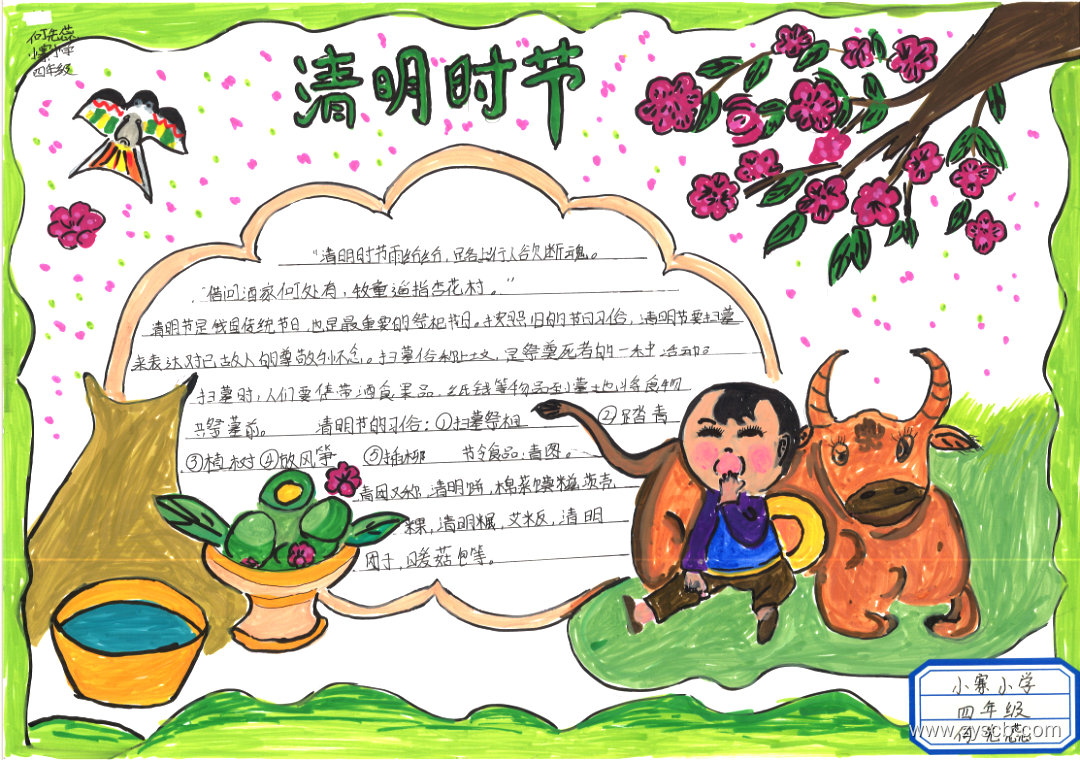 何先蕊
小寨小学
四年级
清明时节
“清明时节雨纷纷，路上行人欲断魂。
“借问酒家何处有，牧童遥指杏花村。”
清明节是我国传统节日，也是最重要的祭祀节日。按照旧的节日习俗，清明节要扫墓
来表达对已故人的尊敬和怀念。扫墓俗称上坟，是祭奠死者的一种活动。
扫墓时，人们要携带酒食果品，纸钱等物品到墓地，将食物
共祭墓前。 清明节的习俗：①扫墓祭祖 ②踏青
③植树 ④放风筝 ⑤插柳 节令食品：青团。
青团又称，清明饼，棉菜馍糍，茨壳
粿，清明粿，艾粄，清明
团子，暖菇包等。
小寨小学
四年级
何先蕊